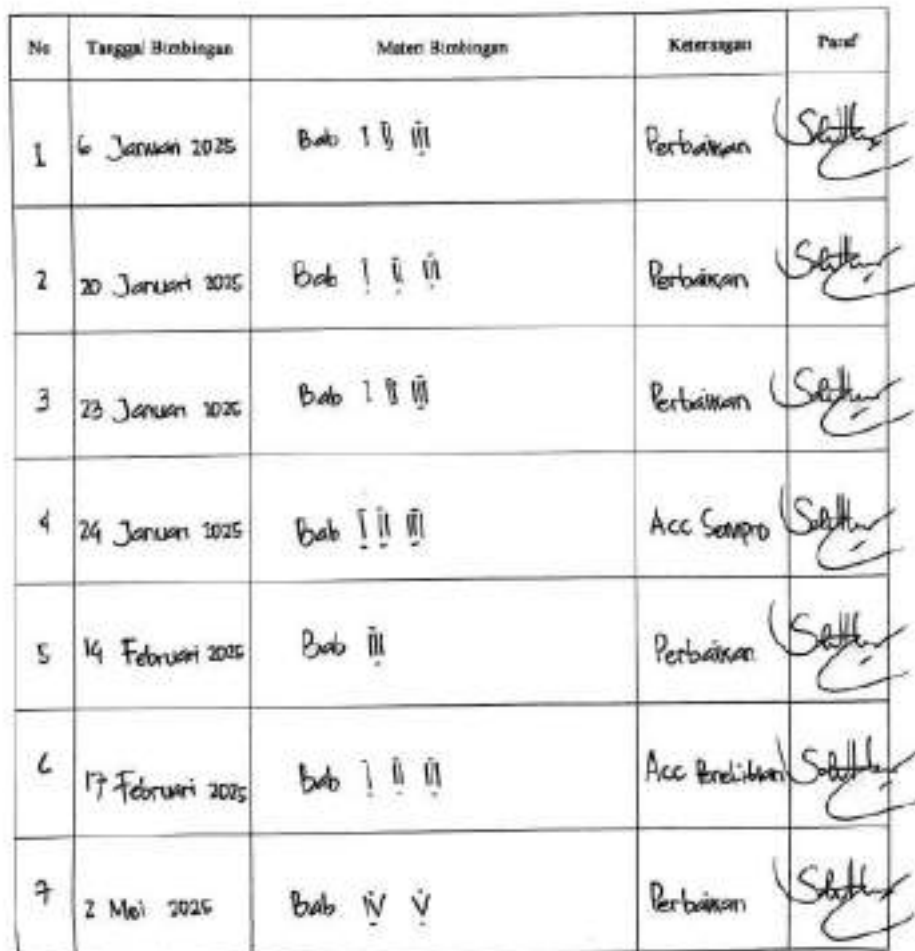 No Tanggal Bimbingan Materi Bimbingan Keterangan Paraf
1 6 Januari 2025 Bab I II III Perbaikan
2 20 Januari 2025 Bab I II III Perbaikan
3 23 Januari 2025 Bab I II III Perbaikan
4 24 Januari 2025 Bab I II III Acc Sempro
5 14 Februari 2025 Bab III Perbaikan
6 17 Februari 2025 Bab I II III Acc Penelitian
7 2 Mei 2025 Bab IV V Perbaikan